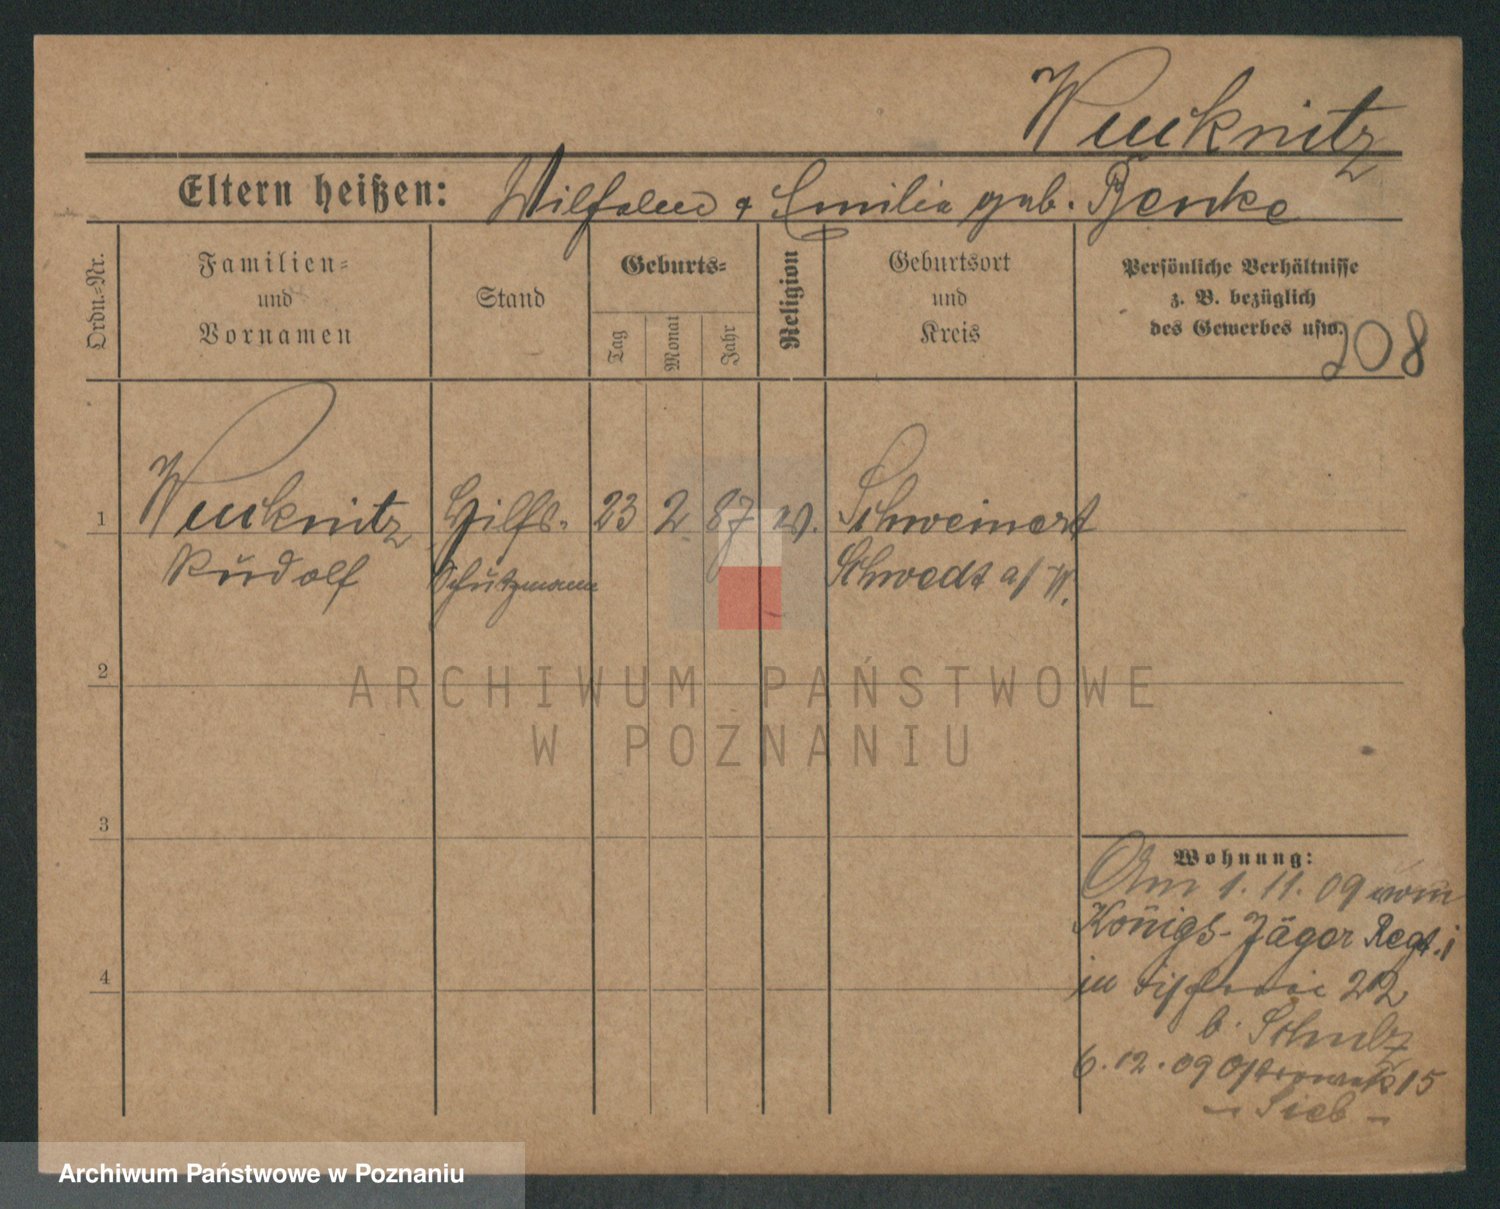 Wucknitz
Eltern heißen: Wilhelm & Emilie geb. Benke
Ordn.-Nr.
Familien-
und
Vornamen
Stand
Geburts-
Tag
Monat
Jahr
Religion
Geburtsort
und
Kreis
Persönliche Verhältnisse
z. B. bezüglich
des Gewerbes usw.
208
1 Wucknitz Hilfs- 23 2 87 ev. Schweinert
Rudolf Schutzmann Schwedt a/W.
2
3
4
Wohnung:
Am 1. 11. 09 vom
Königs-Jäger Regt. 1
in 22
b. Schulz
6. 12. 09 Ostrowek 15
ARCHIWUM PAŃSTWOWE
W POZNANIU
Archiwum Państwowe w Poznaniu